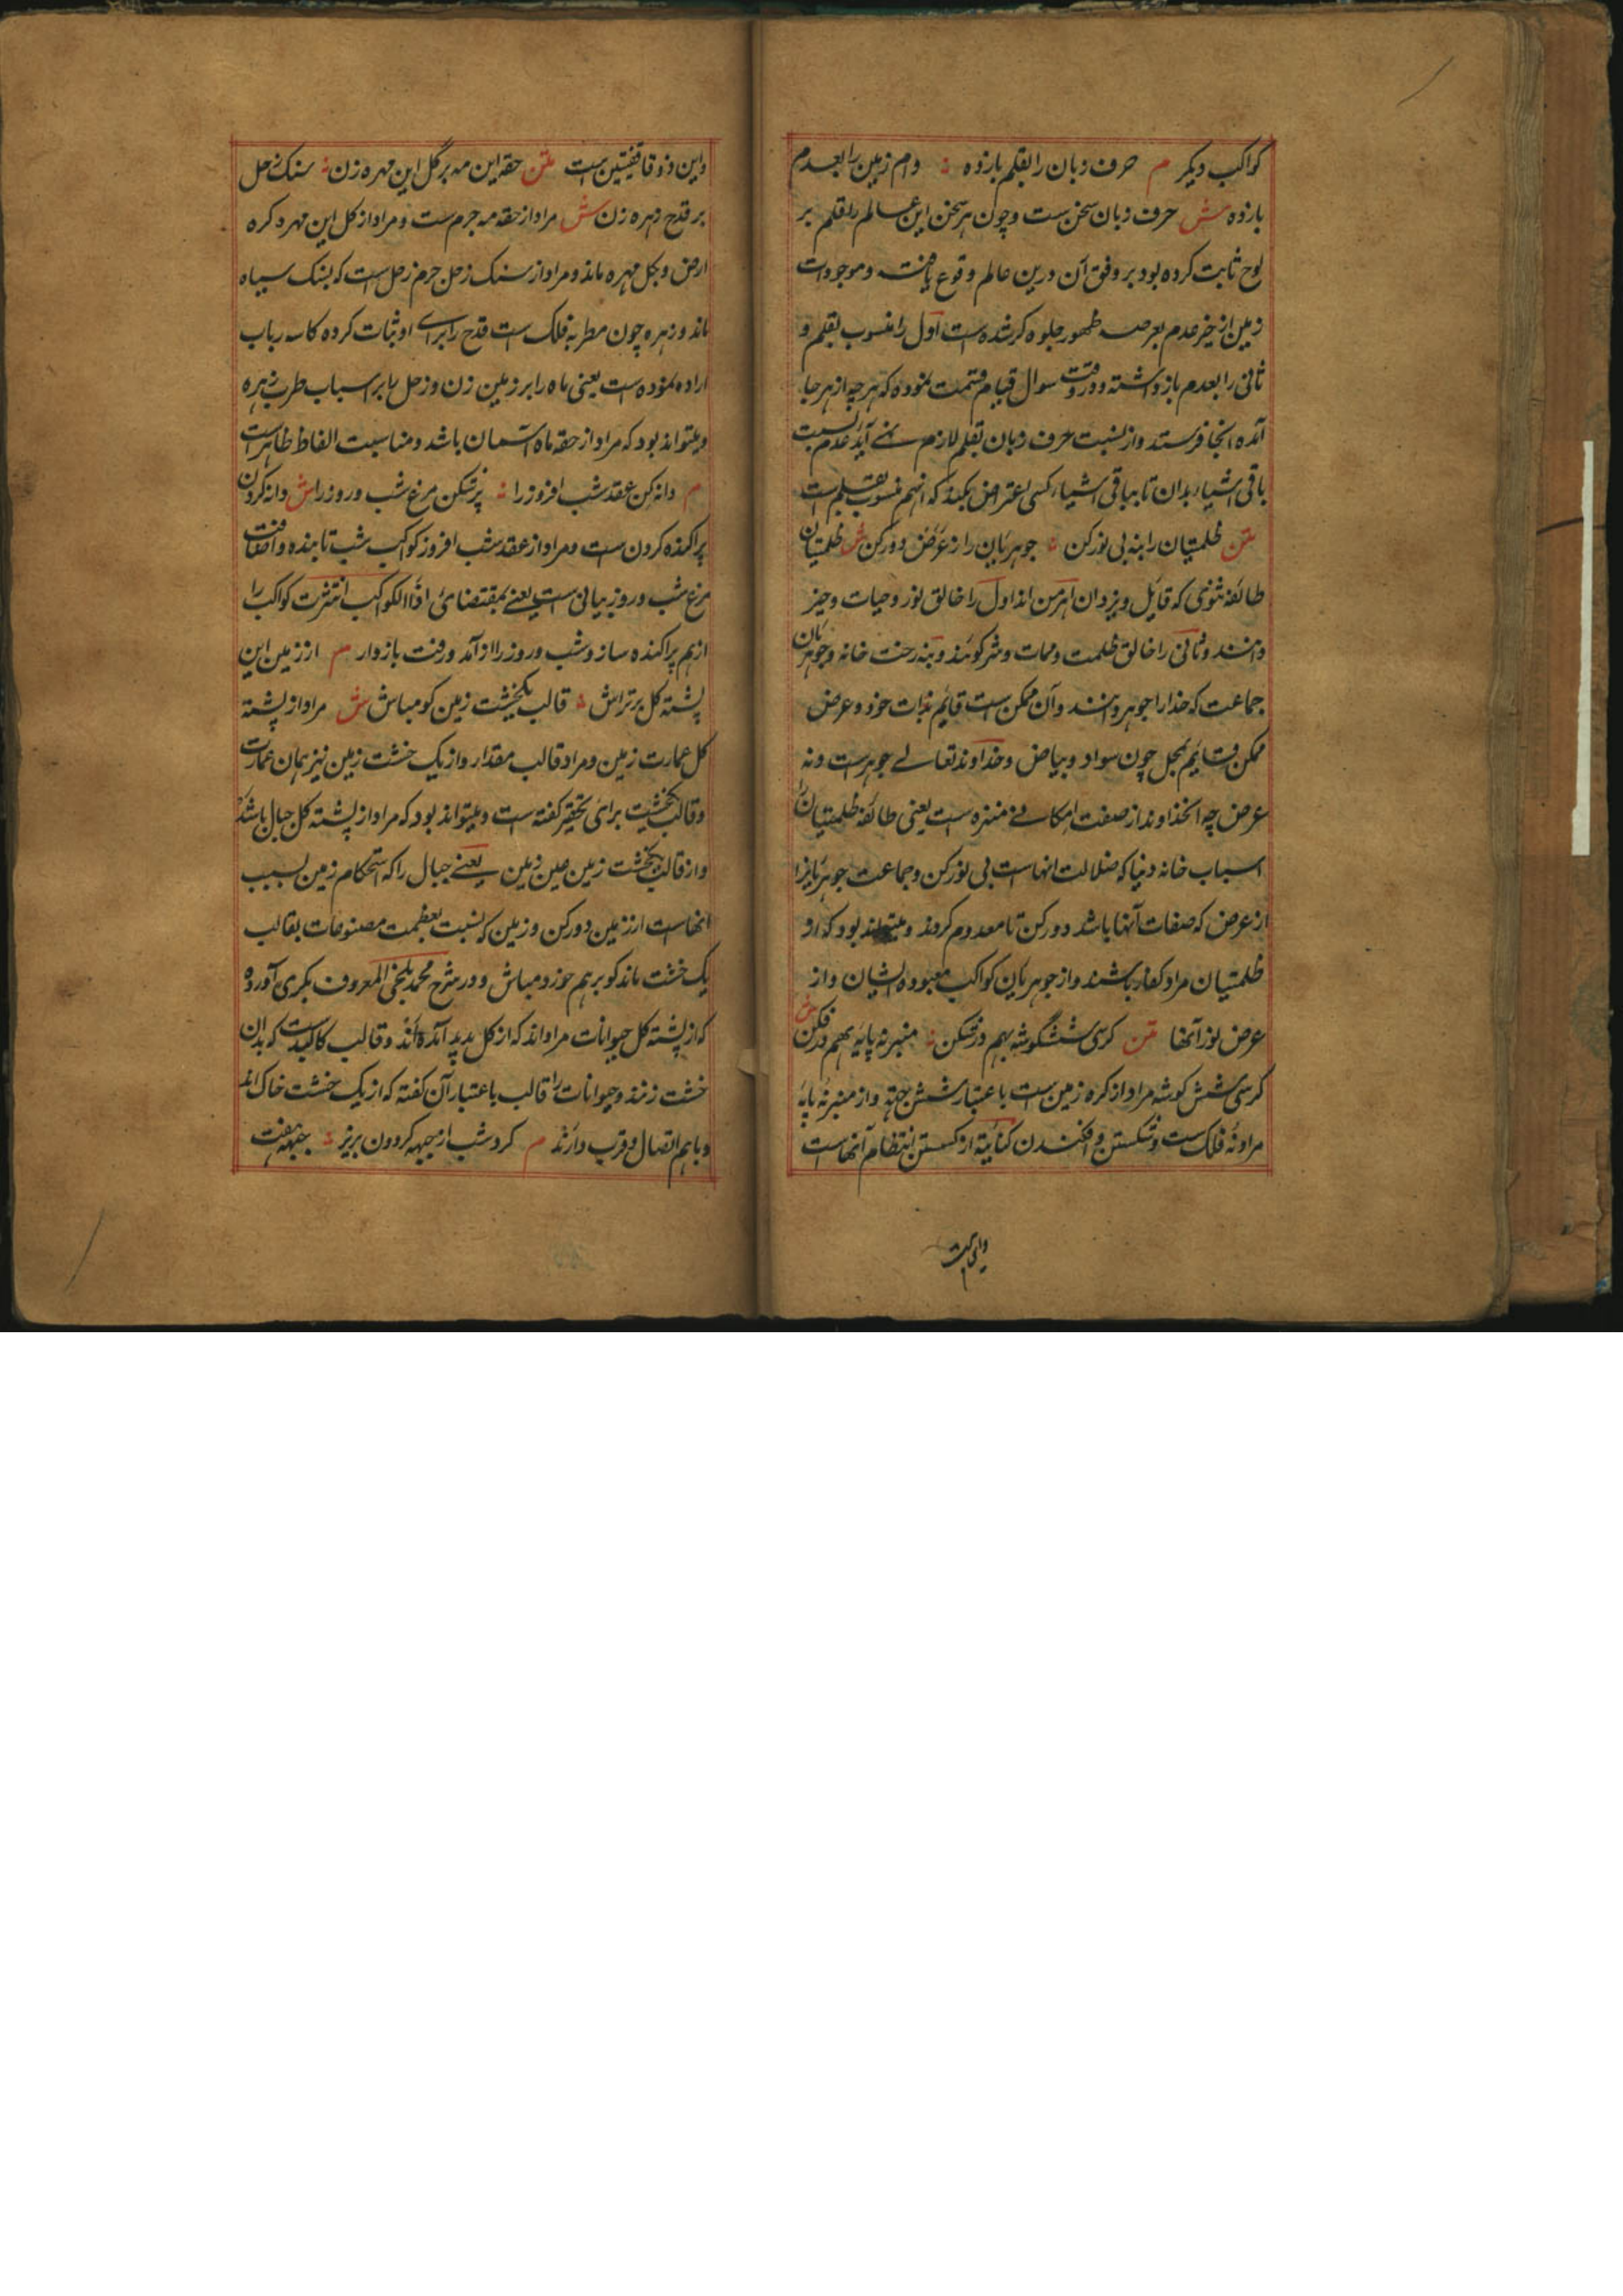 کواکب دیکر م حرف زبان را بقلم بازده ؞ وام زمین را بعدم
بازده ش حرف زبان سخن ست و چون هر سخن این عالم را بقلم بر
لوح ثابت کرده بود بر وفق آن درین عالم وقوع یافته و موجودات
زمین از حیز عدم بعرصه ظهور جلوه کر شده است اول را منسوب بقلم و
ثانی را بعدم باز داشته و در وقت سوال قیام قسمت نموده که هر چه از هر جا
آمده آنجا فرستد و از نسبت حرف زبان بقلم لازم نمی آید عدم نسبت
باقی اشیاء بدان تا بباقی اشیاء کسی اعتراض بکند که آنهم منسوب بقلم است
متن ظلمتیان را بنه بی نور کن ؞ جوهریان را ز عرض دور کن ش ظلمتیان
طائفه ثنوی که قایل ویزدان اهرمن اند اول را خالق نور و حیات و خیر
دانند و ثانی را خالق ظلمت و ممات و شر کویند و بنه رخت خانه و جوهریان
جماعت که خدا را جوهر دانند و آن ممکن ست قایم بذات خود و عرض
ممکن قایم بمحل چون سواد و بیاض و خداوند تعالی جوهرست و نه
عرض چه آنخداوند از صفت امکانی منزه است یعنی طائفه ظلمتیان را
اسباب خانه دنیا که ضلالت انهاست بی نور کن و جماعت جوهریانرا
از عرض که صفات آنها باشد دور کن تا معدوم کردند و میتواند بود که از
ظلمتیان مراد کفار باشند و از جوهریان کواکب معبوده ایشان و از
عرض نور آنها متن کرسی ششکوشه بهم در شکن ؞ منبر نه پایه بهم در فکن ش
کرسی شش کوشه مراد از کره زمین ست باعتبار شش جهة و از منبر نه پایه
مراد نه فلک ست و شکستن و افکندن کنایة از کسستن انتظام آنهاست
و این ذو قافیتین است متن حقه این مه بر کل این مهره زن ؞ سنک زحل
بر قدح زهره زن ش مراد از حقه مه جرم ست و مراد از کل این مهره کره
ارض و بکل مهره ماند و مراد از سنک زحل جرم زحل است که بسنک سیاه
ماند و زهره چون مطربه فلک ست قدح را برای او ثبات کرده کاسه رباب
اراده نموده ست یعنی ماه را بر زمین زن و زحل را بر اسباب طرب زهره
و میتواند بود که مراد از حقه ماه آسمان باشد و مناسبت الفاظ ظاهر است
م دانه کن عقد شب افروز را ؞ پر شکن مرغ شب و روز را ش دانه کردن
پراکنده کردن ست و مراد از عقد شب افروز کواکب شب تابنده و اضافت
مرغ شب و روز بیانی است یعنی بمقتضای اذا الکواکب انتثرت کواکب را
از هم پراکنده ساز و شب و روز را از آمد و رفت باز دار م از زمین این
پشته کل بر تراش ؞ قالب یکخشت زمین کو مباش ش مراد از پشته
کل عمارت زمین و مراد قالب مقدار و از یک خشت زمین نیز همان عمارت
و قالب یکخشت برای تحقیر کفته ست و میتواند بود که مراد از پشته کل جبال باشد
و از قالب یکخشت زمین عین زمین یعنی جبال را که استحکام زمین بسبب
انهاست از زمین دور کن و زمین که نسبت بعظمت مصنوعات بقالب
یک خشت ماند کو بر هم خورد و مباش و در شرح محمد بلخی المعروف بکری آورده
که از پشته کل حیوانات مراد اند که از کل پدید آمده اند و قالب کالبدیست که بدان
خشت زنند و حیوانات را قالب باعتبار آن کفته که از یک خشت خاک اند
و باهم اتصال و قرب دارند م کرد شب از جبهه کردون بریز ؞ جبهه بیفت